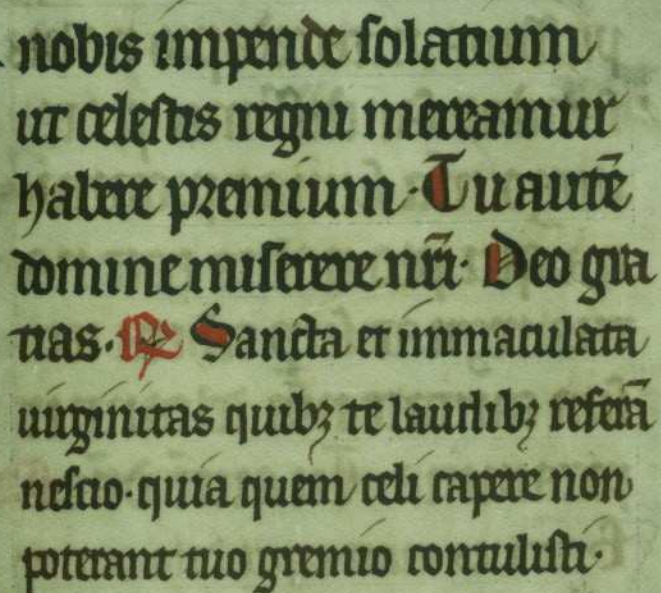 nobis impende solatium
ut celestis regni mereamur
habere premium · Tu autē
domine miserere nr̄i · Deo gra
tias · ℟ Sancta et immaculata
uirginitas quibꝫ te laudibꝫ referā
nescio · quia quem celi capere non
poterant tuo gremio contulisti ·